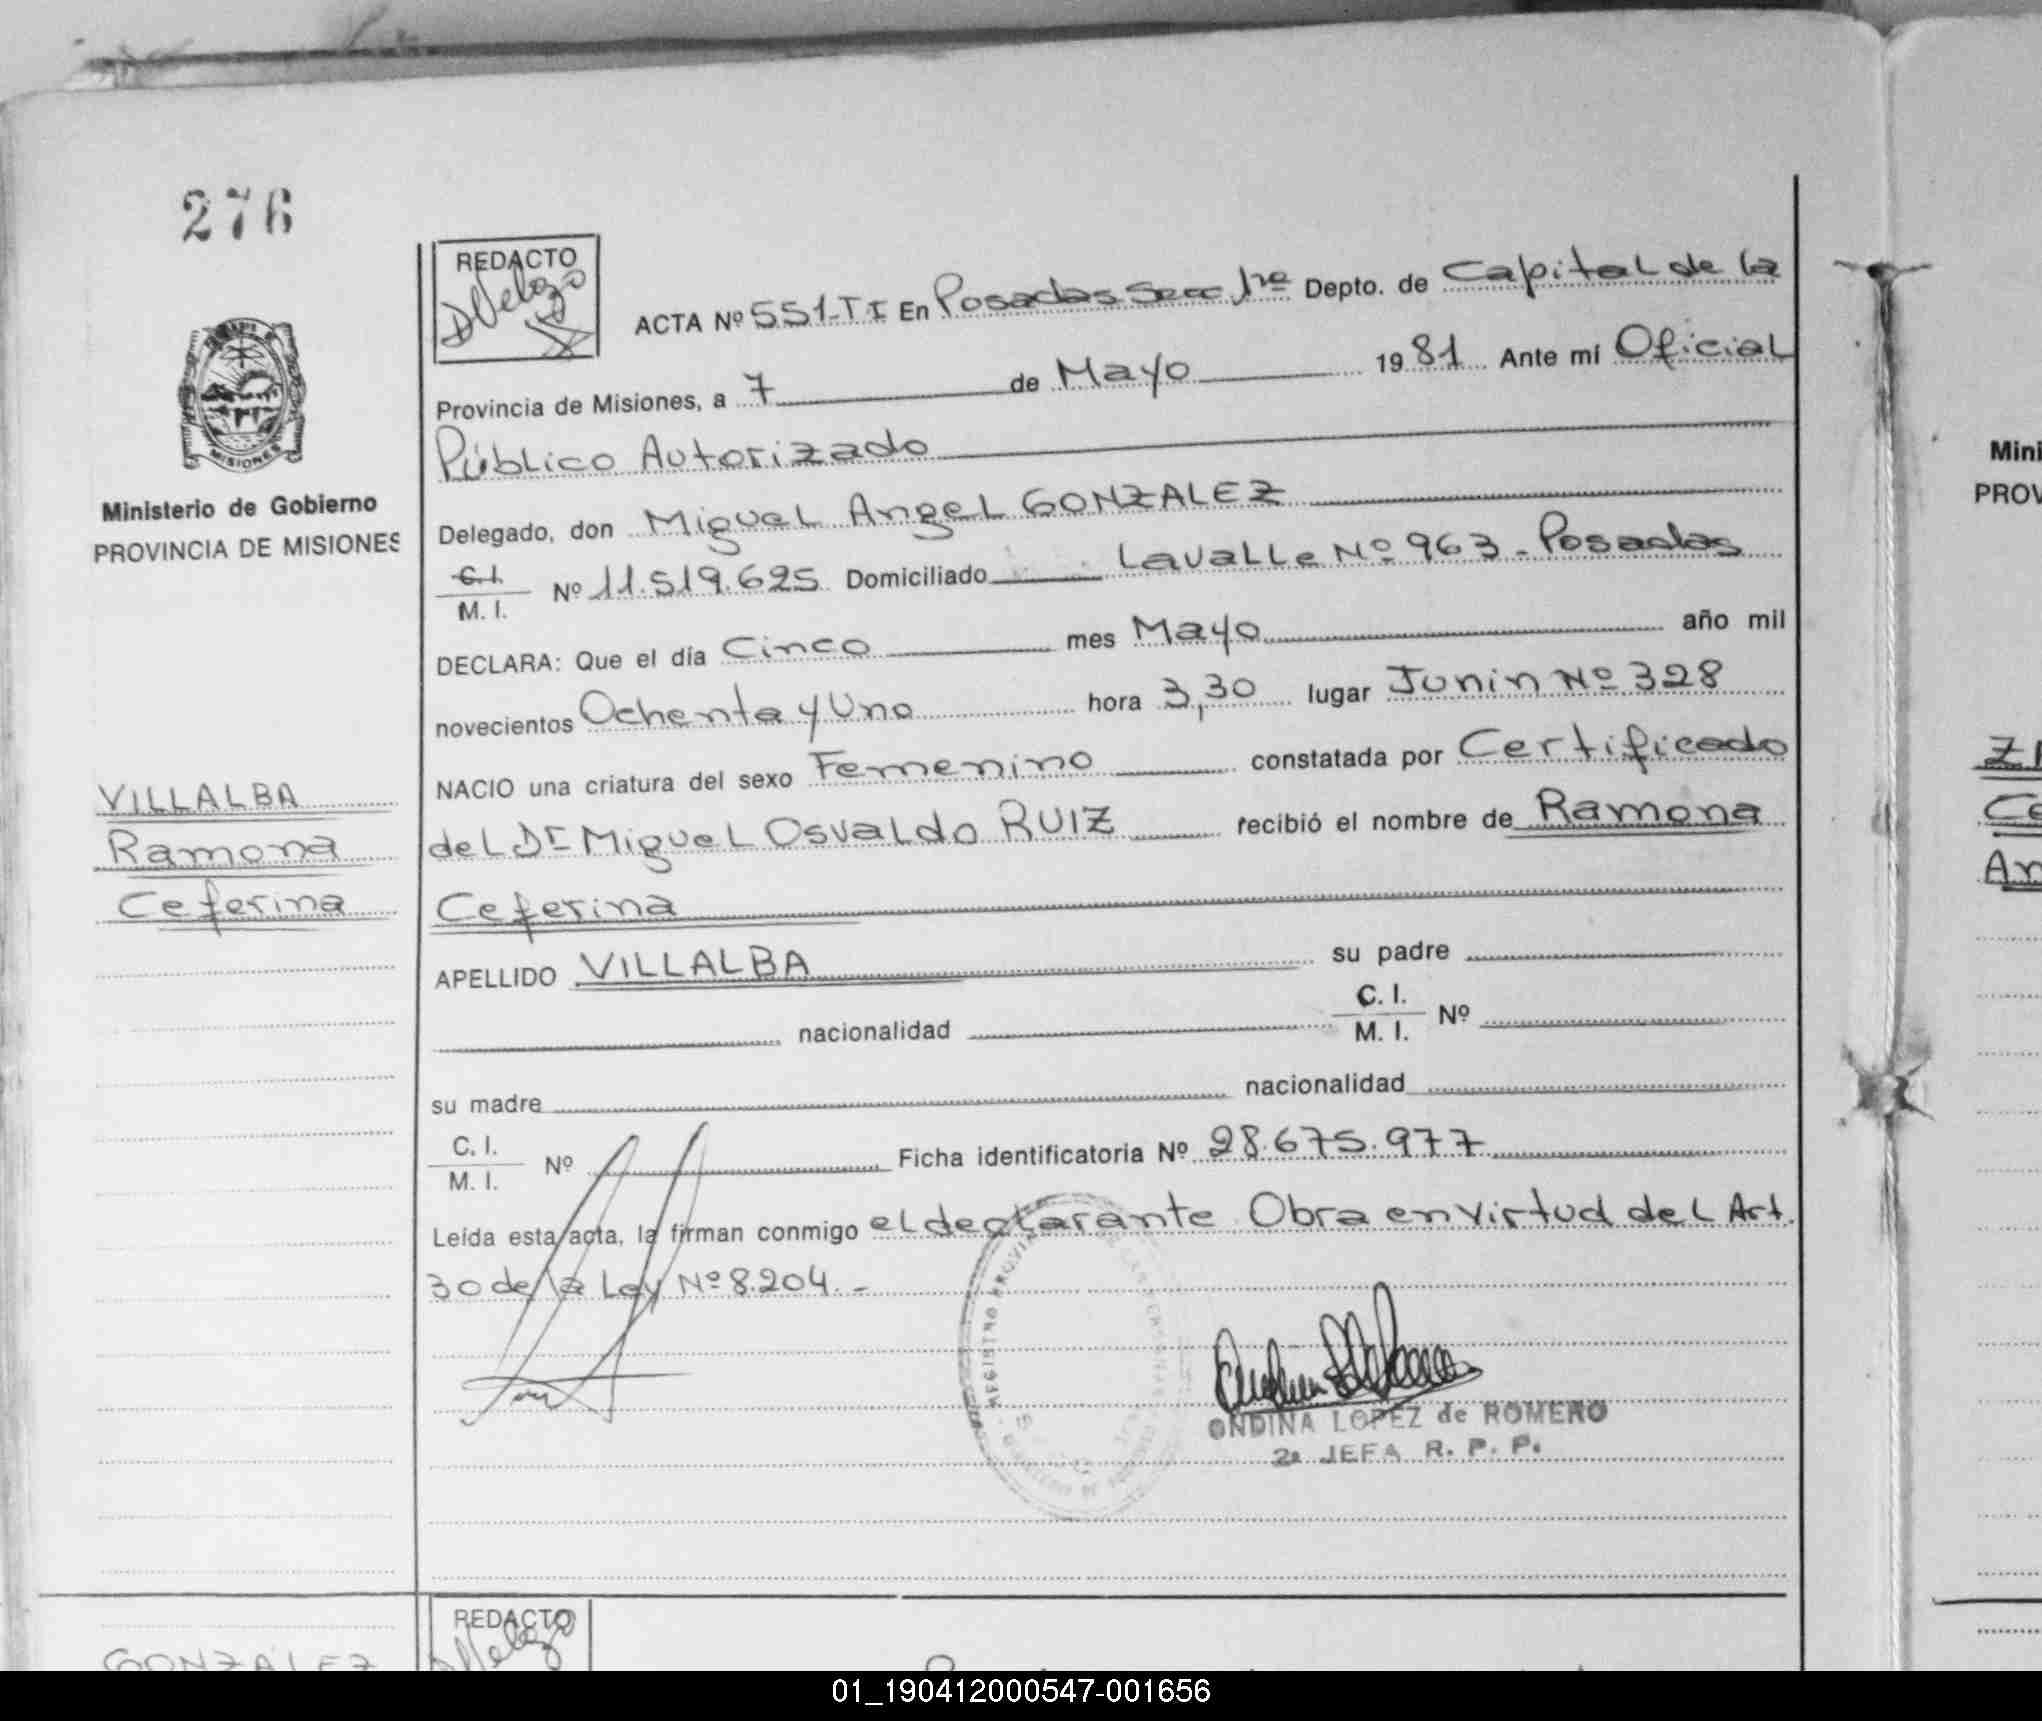 276
REDACTO
DVelozo
ACTA Nº 551-TI En Posadas Secc 1ra Depto. de Capital de la
Provincia de Misiones, a 7 de Mayo 1981 Ante mí Oficial
Público Autorizado
Delegado, don Miguel Angel GONZALEZ
C.I.
M. I. Nº 11.519.625 Domiciliado Lavalle Nº 963 - Posadas
DECLARA: Que el día Cinco mes Mayo año mil
novecientos Ochenta y Uno hora 3,30 lugar Junin Nº 328
NACIO una criatura del sexo Femenino constatada por Certificado
del Dr Miguel Osvaldo RUIZ recibió el nombre de Ramona
Ceferina
APELLIDO VILLALBA su padre
nacionalidad C. I.
M. I. Nº
su madre nacionalidad
C. I.
M. I. Nº Ficha identificatoria Nº 28.675.977
Leída esta acta, la firman conmigo el declarante Obra en virtud del Art.
30 de la Ley Nº 8.204. -
ONDINA LOPEZ de ROMERO
2a JEFA R. P. P.
MISIONES
Ministerio de Gobierno
PROVINCIA DE MISIONES
VILLALBA
Ramona
Ceferina
REGISTRO PROVINCIAL
REDACTO
DVelozo
GONZALEZ
Mini
PROV
Ce
An
01_190412000547-001656